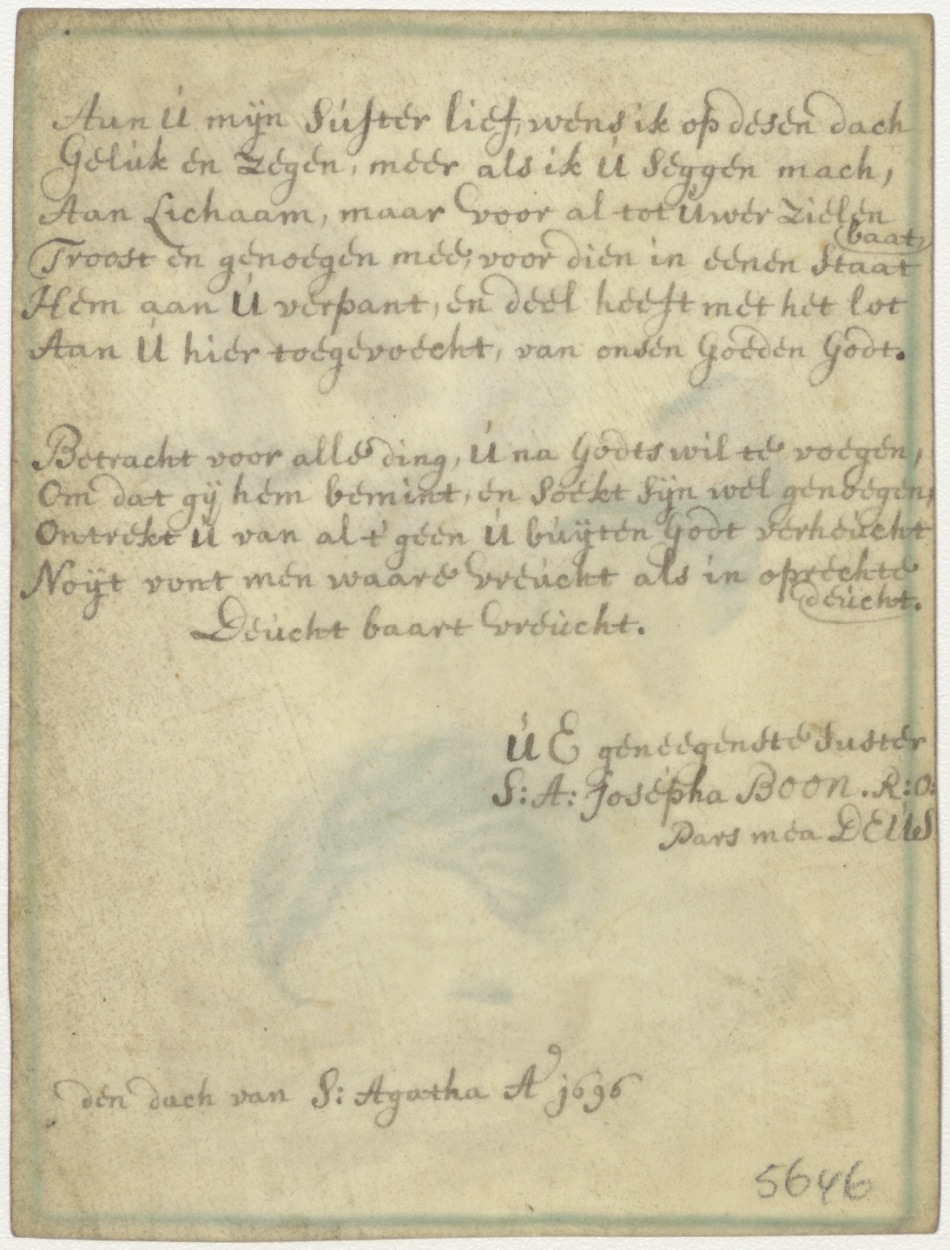 Aan Ú mÿn Súster lief, wens ik op desen dach
Gelúk en Zegen, meer als ik Ú seggen mach,
Aan Lichaam, maar voor al tot Úwer Zielen
baat
Troost en genoegen mee, voor dien in eenen staat
Hem aan Ú verpant, en deel heeft met het lot
Aan Ú hier toegevoecht, van onsen Goeden Godt.
Betracht voor alle ding, Ú na Godts wil te voegen,
Om dat gÿ hem bemint, en soekt sÿn wel genoegen,
Ontrekt Ú van al t' geen Ú búÿten Godt verheúcht
Noÿt vont men waare vreúcht als in oprechte
deúcht.
Deúcht baart vreúcht.
Ú E geneegenste suster
S: A: Josepha BOON. R: O:
Pars mea DEUS
den dach van S: Agatha Aº 1696
5646